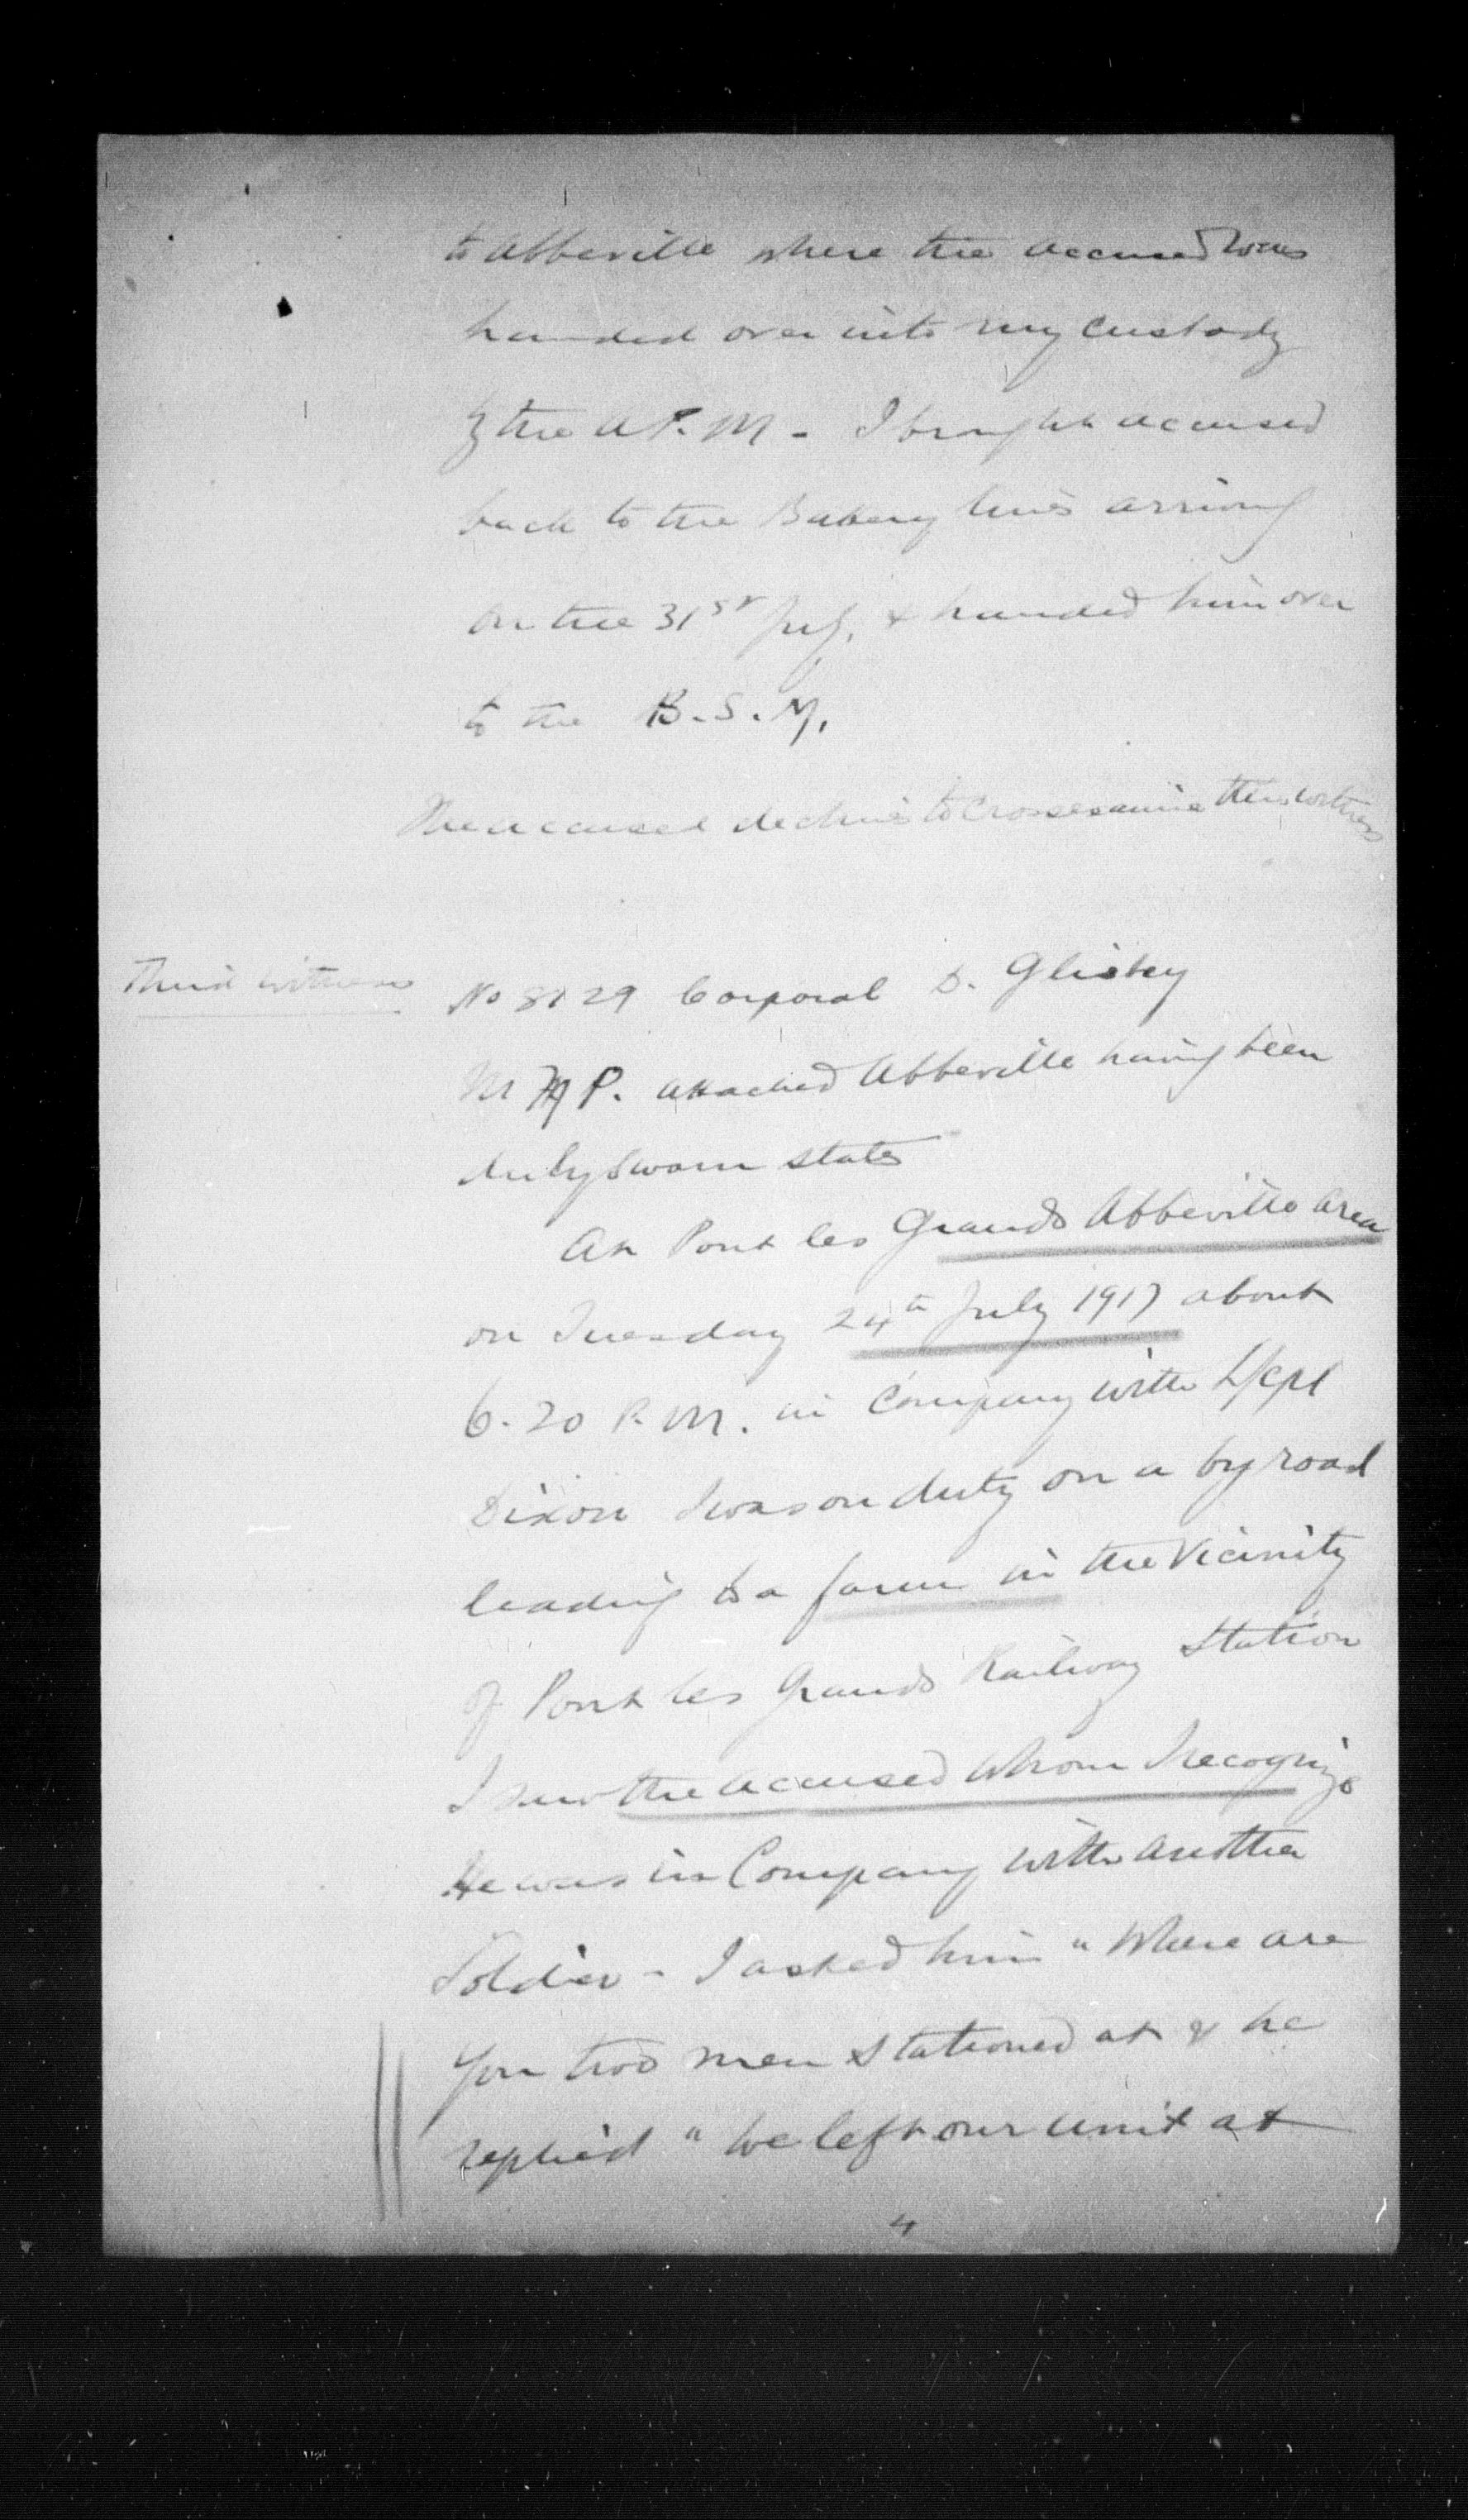 to Abbeville where the accused was
handed over into my custody
by the A.P.M - I brought accused
back to the Bakery lines arriving
on the 31st July, & handed him over
to the B.S.M.
The accused declines to cross examine this witness
Third witness
No 8129 Corporal D.
M M P. attached Abbeville having been
duly sworn states
At Pont les Grands Abbeville area
on Tuesday 24th July 1917 about
6.20 P.M. in Company with L/Cpl
Dixon I was on duty on a by road
leading to a farm in the Vicinity
of Pont les Grands Railway Station
I saw the accused whom I recognize
He was in Company with another
Soldier - I asked him "Where are
You two men stationed at & he
replied "We left our unit at
4